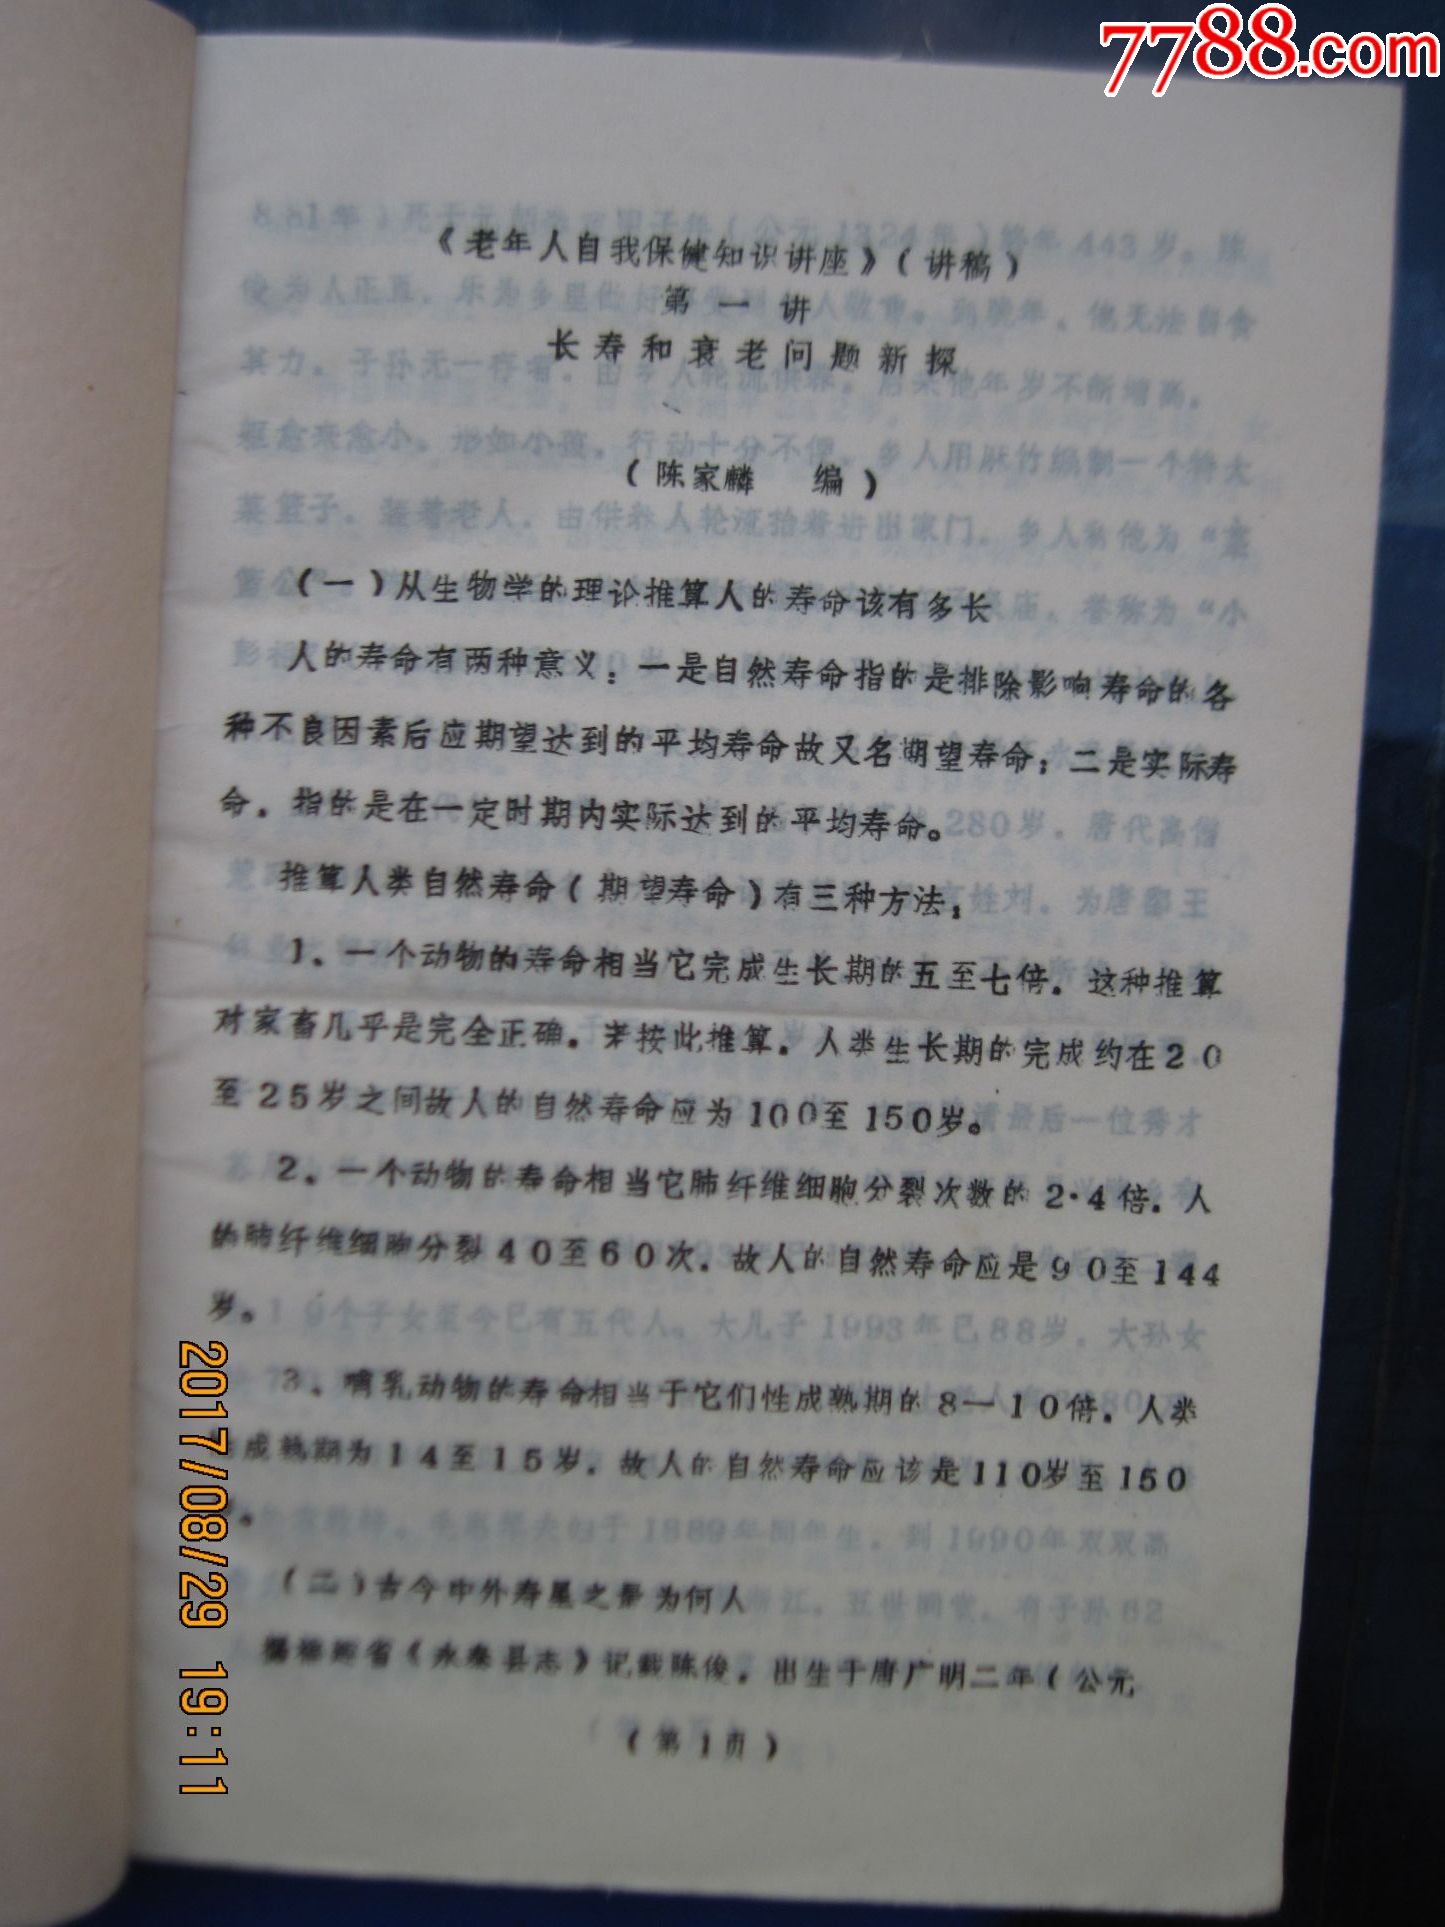 7788.com
《老年人自我保健知识讲座》(讲稿)
第一讲
长寿和衰老问题新探
(陈家麟 编)
(一)从生物学的理论推算人的寿命该有多长
人的寿命有两种意义:一是自然寿命指的是排除影响寿命的各
种不良因素后应期望达到的平均寿命故又名期望寿命;二是实际寿
命.指的是在一定时期内实际达到的平均寿命。
推算人类自然寿命(期望寿命)有三种方法:
1、一个动物的寿命相当它完成生长期的五至七倍.这种推算
对家畜几乎是完全正确。按此推算.人类生长期的完成约在20
至25岁之间故人的自然寿命应为100至150岁。
2、一个动物的寿命相当它肺纤维细胞分裂次数的2·4倍.人
的肺纤维细胞分裂40至60次.故人的自然寿命应是90至144
岁。
3、哺乳动物的寿命相当于它们性成熟期的8—10倍.人类
成熟期为14至15岁.故人的自然寿命应该是110岁至150
。
(二)古今中外寿星之最为何人
据福建省《永泰县志》记载陈俊.出生于唐广明二年(公元
(第1页)
2017/08/29 19:11